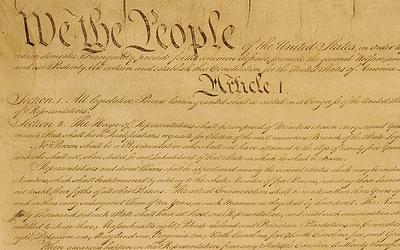 We the People of the United States, in order to
insure domestic Tranquility, provide for the common defence, promote the general Welfare, and
and our Posterity, do ordain and establish this Constitution for the United States of America
Article 1
Section 1. All legislative Powers herein granted shall be vested in a Congress of the United
of Representatives.
Section 2. The House of Representatives shall be composed of Members chosen every second Year
in each State shall have the Qualifications requisite for Electors of the most numerous Branch of the State
No Person shall be a Representative who shall not have attained to the Age of twenty five Years
and who shall not, when elected, be an Inhabitant of that State in which he shall be chosen.
Representatives and direct Taxes shall be apportioned among the several States which may be
Numbers, which shall be determined by adding to the whole Number of free Persons, including those
not taxed, three fifths of all other Persons. The actual Enumeration shall be made within three Years
and within every subsequent Term of ten Years, in such Manner as they shall by Law direct. The
thirty Thousand, but each State shall have at Least one Representative; and until such enumeration
entitled to chuse three, Massachusetts eight, Rhode Island and Providence Plantations one, Connecticut
eight, Delaware one, Maryland
When vacancies happen in the Representation from any State, the Executive Authority